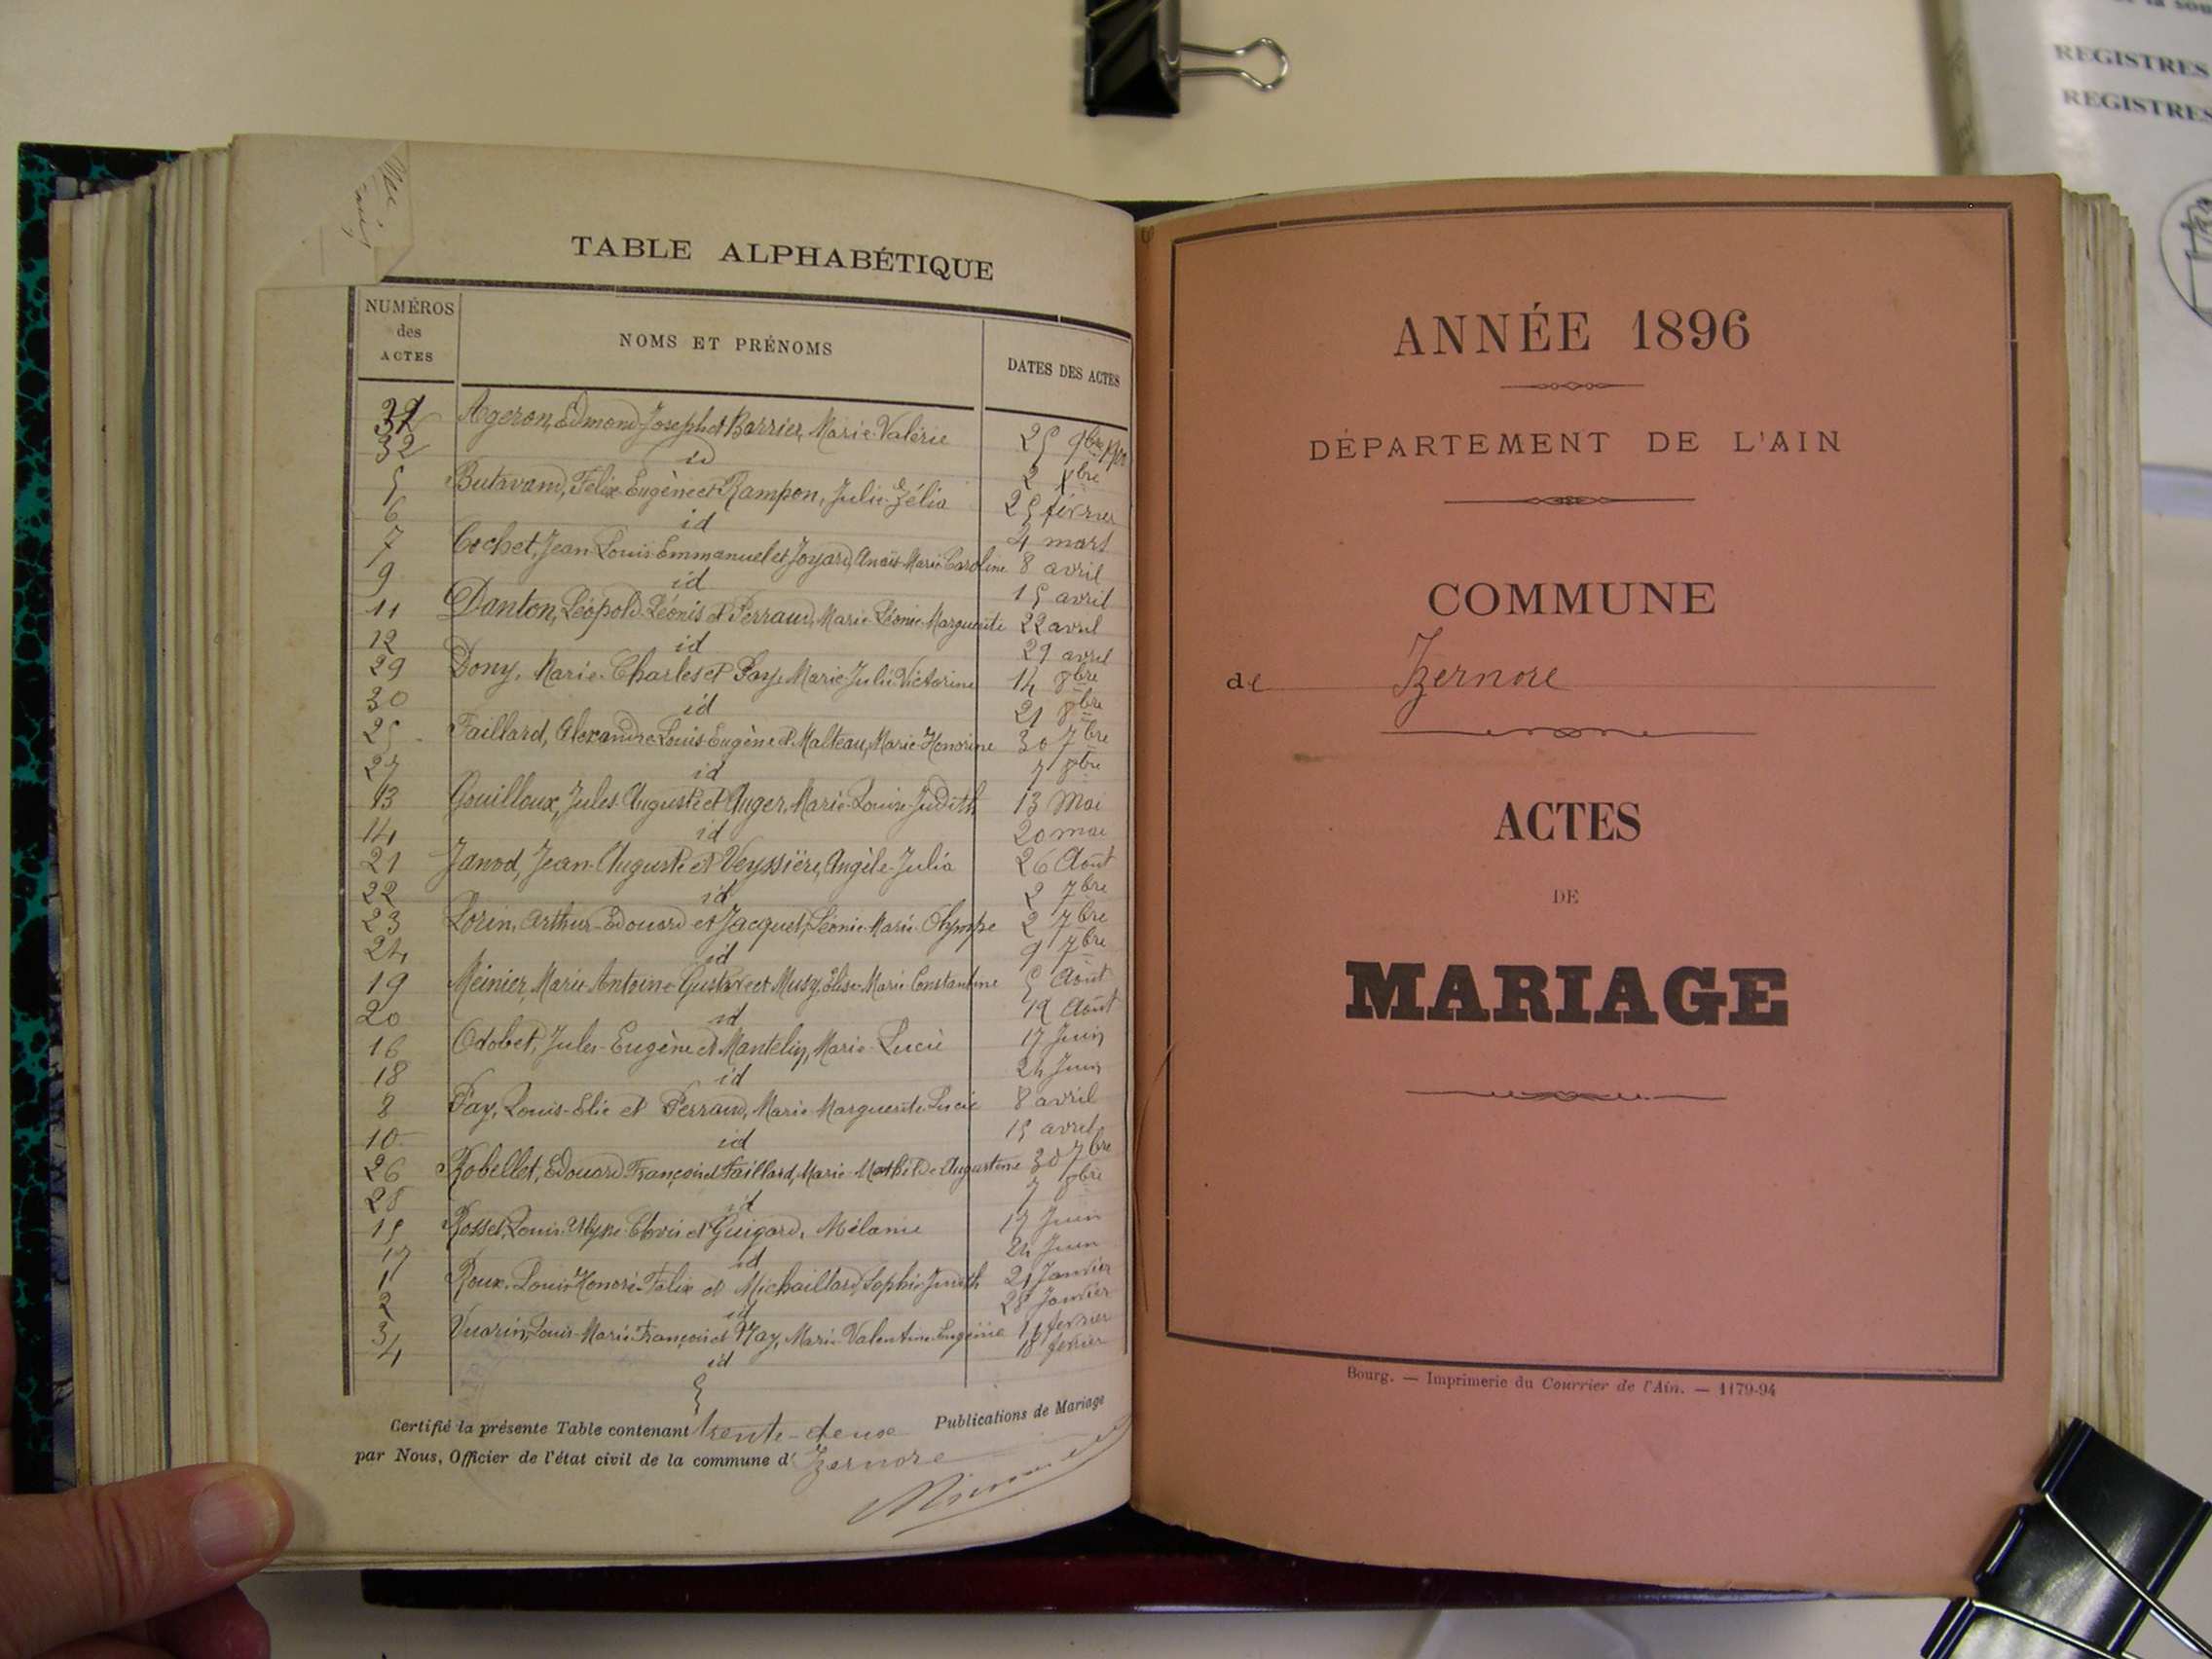 TABLE ALPHABÉTIQUE
NUMÉROS des ACTES
NOMS ET PRÉNOMS
DATES DES ACTES
31 Ageron, Edmond Joseph et Barrier, Marie Valérie 25 9bre
32 id 2 Xbre
5 Butavand, Félix Eugène et Rampon, Julie Zélia 25 février
6 id 4 mars
7 Cochet, Jean Louis Emmanuel et Joyard, Anaïs Marie Caroline 8 avril
9 id 15 avril
11 Danton, Léopold Léonis et Perraud, Marie Léonie Marguerite 22 avril
12 id 29 avril
29 Dony, Marie Charles et Marie Julie Victorine 14 8bre
30 id 21 8bre
25 Faillard, Alexandre Louis Eugène et Malteau, Marie Honorine 30 7bre
27 id 7 8bre
13 Gouilloux, Jules Auguste et Auger, Marie Louise Judith 13 Mai
14 id 20 mai
21 Janod, Jean Auguste et Veyssière, Angèle Julia 26 Août
22 id 2 7bre
23 Lorin, Arthur Edouard et Jacquet, Léonie Marie Olympe 2 7bre
24 id 9 7bre
19 Meinier, Marie Antoine Gustave et Musy, Elise Marie Constantine 5 Août
20 id Août
16 Odobet, Jules Eugène et Mantelin, Marie Lucie 17 Juin
18 id 24 Juin
8 Pay, Louis-Elie et Perraud, Marie Marguerite Lucie 8 avril
10 id 15 avril
26 Robellet, Edouard François et Faillard, Marie Mathilde Augustine 30 7bre
28 id 7 8bre
15 Rosset, Louis Ulysse Clovis et Guigard, Mélanie 17 Juin
17 id 24 Juin
1 Roux, Louis Honoré Félix et Michaillard, Sophie Judith 21 Janvier
2 id 28 Janvier
3 Vuarin, Louis Marie François et Marie Valentine Eugénie 11 février
4 id 18 février
Certifié la présente Table contenant trente-deux Publications de Mariage
par Nous, Officier de l'état civil de la commune d'Izernore
ANNÉE 1896
DÉPARTEMENT DE L'AIN
COMMUNE
de Izernore
ACTES
DE
MARIAGE
Bourg. — Imprimerie du Courrier de l'Ain. — 1179-94
REGISTRES
REGISTRES